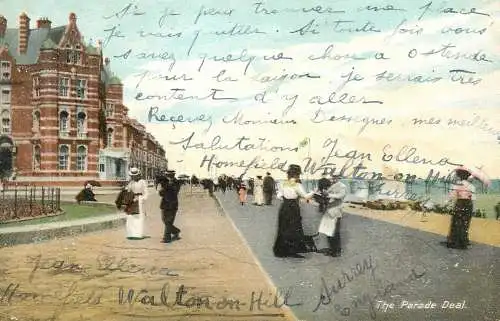 Si je peux trouver une place
je vais quitter. Si toute fois vous
savez quelque chou a Ostende
pour la saison je serrais très
content d'y aller
Recevez Monsieur Dessegnes, mes meilleurs
salutations Jean Ellena
Homefield Walton-on-Hill
Surrey
Jean Ellena
Homefield Walton-on-Hill
Surrey
The Parade Deal.